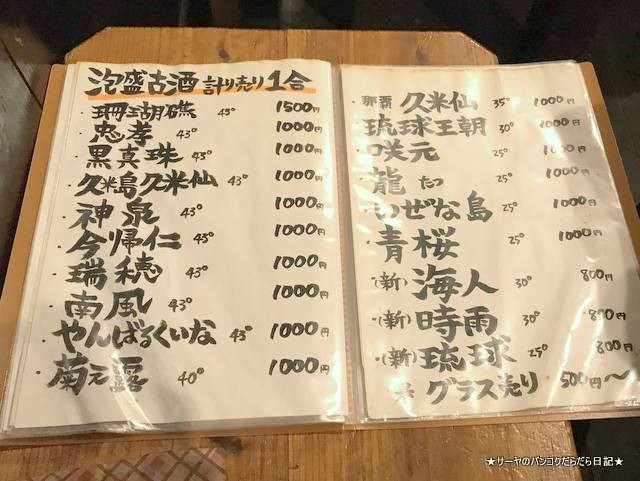 泡盛古酒 計り売り 1合
・珊瑚礁 43° 1500円
・忠孝 43° 1000円
・黒真珠 43° 1000円
・久米島久米仙 43° 1000円
・神泉 43° 1000円
・今帰仁 43° 1000円
・瑞穂 43° 1000円
・南風 43° 1000円
・やんばるくいな 43° 1000円
・菊之露 40° 1000円
・那覇 久米仙 35° 1000円
・琉球王朝 30° 1000円
・咲元 25° 1000円
・龍 たつ 25° 1000円
・いぜな島 25° 1000円
・青桜 25° 1000円
・(新)海人 30° 800円
・(新)時雨 30° 800円
・(新)琉球 25° 800円
※ グラス売り 500円〜
★サーヤのバンコクだらだら日記★